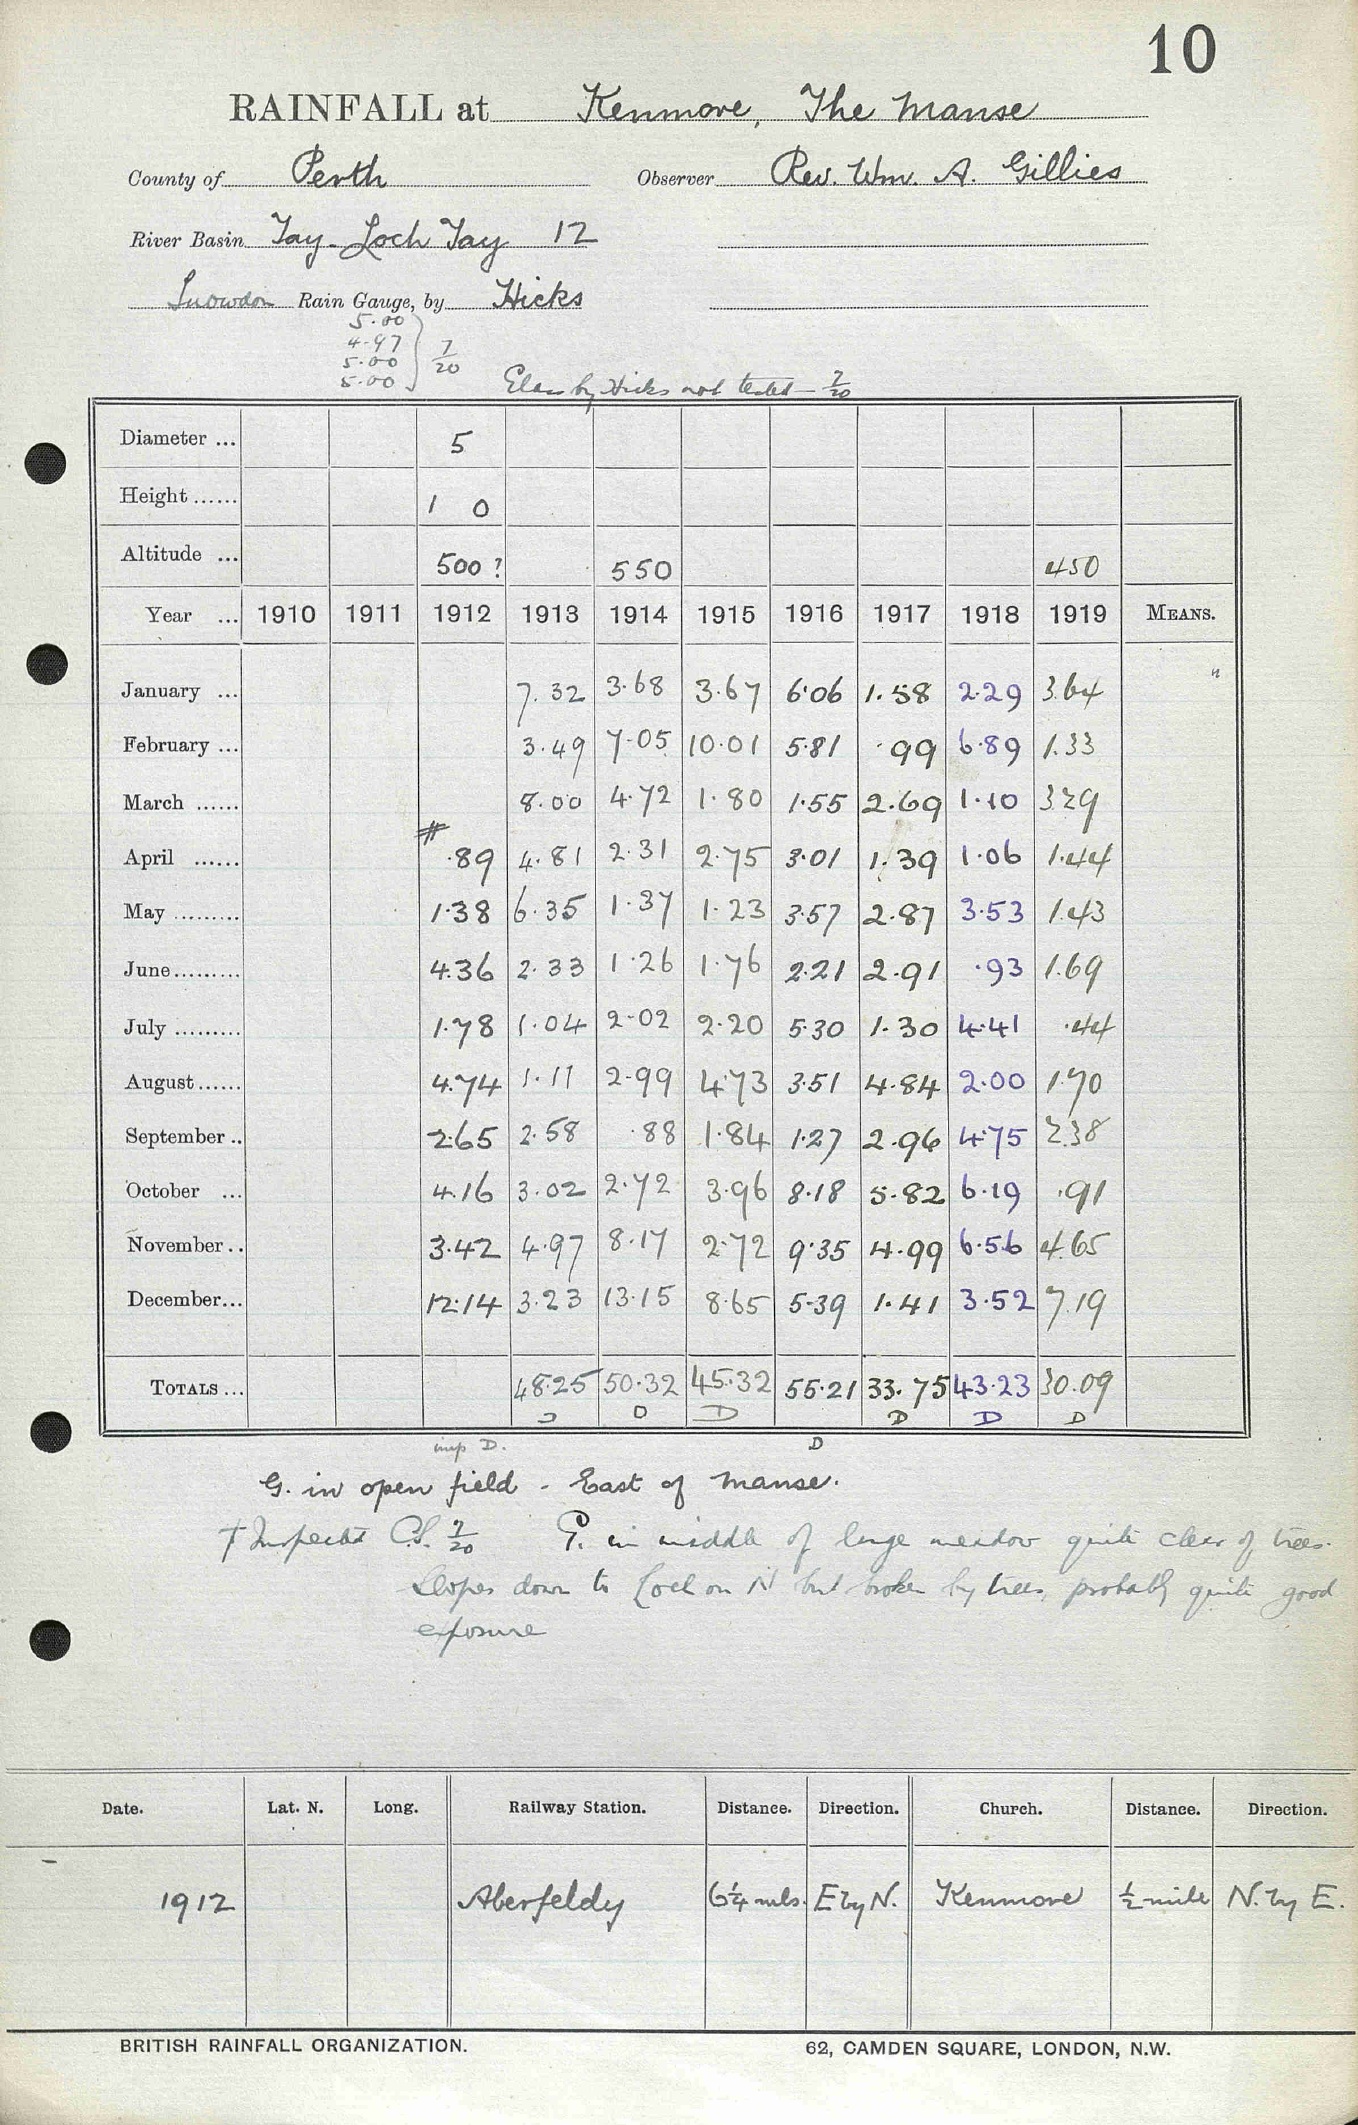 10
RAINFALL at Kenmore, The Manse
County of Perth Observer Rev. Wm. A. Gillies
River Basin Tay - Loch Tay 12
Snowdon Rain Gauge, by Hicks
5.00
4.97
5.00
5.00
7/20
Glass by Hicks not tested - 7/20
Diameter ... 5
Height ...... 1 0
Altitude ... 500? 550 450
Year ... 1910 1911 1912 1913 1914 1915 1916 1917 1918 1919 MEANS.
January ... 7.32 3.68 3.67 6.06 1.58 2.29 3.64 "
February ... 3.49 7.05 10.01 5.81 .99 6.89 1.33
March ...... 8.00 4.72 1.80 1.55 2.69 1.10 3.29
April ...... # .89 4.81 2.31 2.75 3.01 1.39 1.06 1.44
May ......... 1.38 6.35 1.37 1.23 3.57 2.87 3.53 1.43
June......... 4.36 2.33 1.26 1.76 2.21 2.91 .93 1.69
July ......... 1.78 1.04 2.02 2.20 5.30 1.30 4.41 .44
August...... 4.74 1.11 2.99 4.73 3.51 4.84 2.00 1.70
September.. 2.65 2.58 .88 1.84 1.27 2.96 4.75 2.38
October ... 4.16 3.02 2.72 3.96 8.18 5.82 6.19 .91
November.. 3.42 4.97 8.17 2.72 9.35 4.99 6.56 4.65
December... 12.14 3.23 13.15 8.65 5.39 1.41 3.52 7.19
TOTALS ... 48.25 50.32 45.32 55.21 33.75 43.23 30.09
D D D D D D
imp D. D
G. in open field - East of Manse.
† Inspected C.S. 7/20 G. in middle of large meadow quite clear of trees.
Slopes down to Loch on N but broken by trees, probably quite good
exposure
Date. Lat. N. Long. Railway Station. Distance. Direction. Church. Distance. Direction.
1912 Aberfeldy 6¼ mls. E by N. Kenmore ½ mile N. by E.
BRITISH RAINFALL ORGANIZATION. 62, CAMDEN SQUARE, LONDON, N.W.